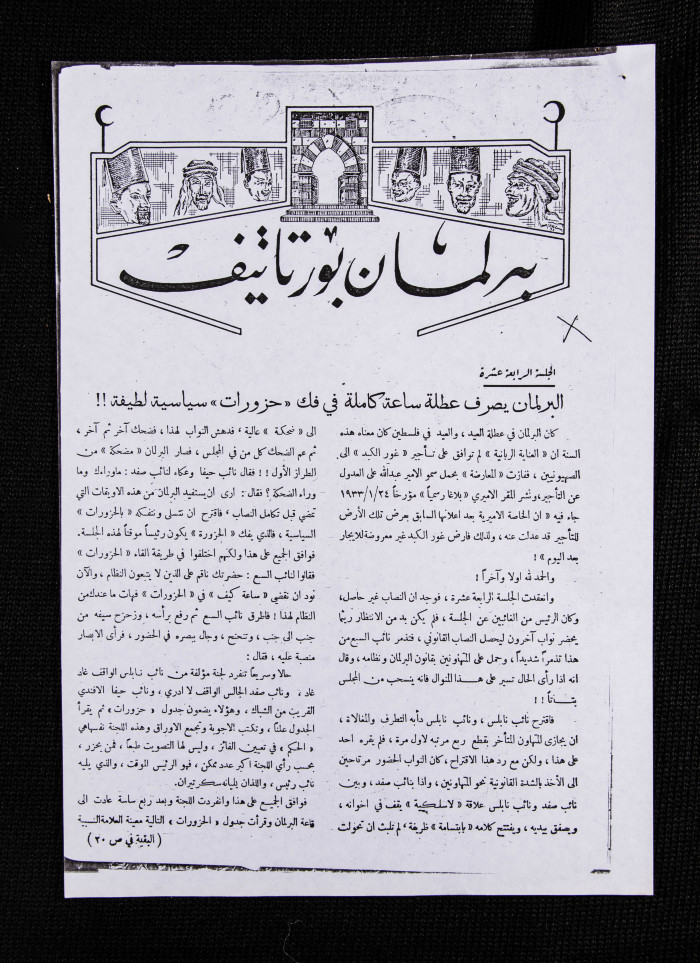 برلمان بورتاتيف
الجلسة الرابعة عشرة
البرلمان يصرف عطلة ساعة كاملة في فك «حزورات» سياسية لطيفة !!
كان البرلمان في عطلة العيد ، والعيد في فلسطين كان معناه هذه
السنة ان « العناية الربانية » لم توافق على تـأجير « غور الكبد » الى
الصهيونيين ، ففازت « المعارضة » بحمل سمو الامير عبدالله على العدول
عن التأجير، ونشر المقر الاميري « بلاغا رسمياً » مؤرخاً ١٩٣٣/١/٢٤
جاء فيه « ان الخاصة الاميرية بعد اعلانها السابق بعرض تلك الأرض
للتأجير قد عدلت عنه ، ولذلك فارض غور الكبد غير معروضة للايجار
بعد اليوم » !
والحمد لله اولا وآخراً !
وانعقدت الجلسة الرابعة عشرة ، فوجد ان النصاب غير حاصل،
وكان الرئيس من الغائبين عن الجلسة ، فلم يكن بد من الانتظار ريثما
يحضر نواب آخرون ليحصل النصاب القانوني ، فتذمر نائب السبع من
هذا تذمراً شديداً ، وحمل على المتهاونين بقانون البرلمان ونظامه ، وقال
انه اذا رأى الحال تسير على هـذا المنوال فانه ينسحب من المجلس
بتـاتاً !!
فاقترح نائب نابلس ، ونائب نابلس دأبه التطرف والمغالاة ،
ان يجازى المتهاون المتأخر بقطع ربع مرتبه لاول مرة ، فلم يقره احد
على هذا ، ولكن مع رد هذا الاقتراح ، كان النواب الحضور مرتاحين
الى الأخذ بالشدة القانونية نحو المتهاونين ، واذا بنائب صفد ، وبين
نائب صفد ونائب نابلس علاقة « لاسلكية » يقف في اخوانه ،
ويصفق بيديه ، ويفتتح كلامه « بابتسامة » ظريفة ، لم تلبث ان تحولت
الى « ضحكة » عالية ، فدهش النواب لهذا ، فضحك آخر ثم آخر ،
ثم عم الضحك كل من في المجلس ، فصار البرلمان « مضحكة » من
الطراز الأول !! فقال نائب حيفا وعكاء لنائب صفد : ماوراءك وما
وراء الضحكة ؟ فقال : ارى ان يستفيد البرلمان من هذه الاويقات التي
تمضي قبل تكامل النصاب ، فاقترح ان نتسلى ونتفكه « بالحزورات »
السياسية ، فالذي يفك « الحزورة » يكون رئيساً موقتاً لهذه الجلسة.
فوافق الجميع على هذا ولكنهم اختلفوا في طريقة القاء « الحزورات »
فقالوا لنائب السبع : حضرتك ناقم على الذين لا يتبعون النظام ، والآن
نود ان نقضي « ساعة كيف » في « الحزورات » فهات ما عندك من
النظام لهذا ! فاطرق نائب السبع ثم رفع رأسه ، وزحزح سيفه من
جنب الى جنب ، وتنحنح ، وجال ببصره في الحضور ، فرأى الابصار
منصبة عليه ، فقال :
حالا وسريعاً تنفرد لجنة مؤلفة من نائب نابلس الواقف غاد
غاد ، ونائب صفد الجالس الواقف لا ادري ، ونائب حيفا الافندي
القريب من الشباك ، وهؤلاء يضعون جدول « حزورات » ثم يقرأ
الجدول علناً ، وتكتب الاجوبة وتجمع الاوراق وهذه اللجنة نفسها هي
« الحكم » في تعيين الفائز ، وليس لها التصويت طبعاً ، فمن يحزر ،
بحسب رأي اللجنة اكثر عدد ممكن ، فهو الرئيس الموقت ، والذي يليه
نائب رئيس ، واللذان يليانه سكرتيران.
فوافق الجميع على هذا وانفردت اللجنة وبعد ربع ساسة عادت الى
قاعة البرلمان وقرأت جدول « الحزورات » التالية معينة العلامة النسبية
( البقية في ص ٢٠ )